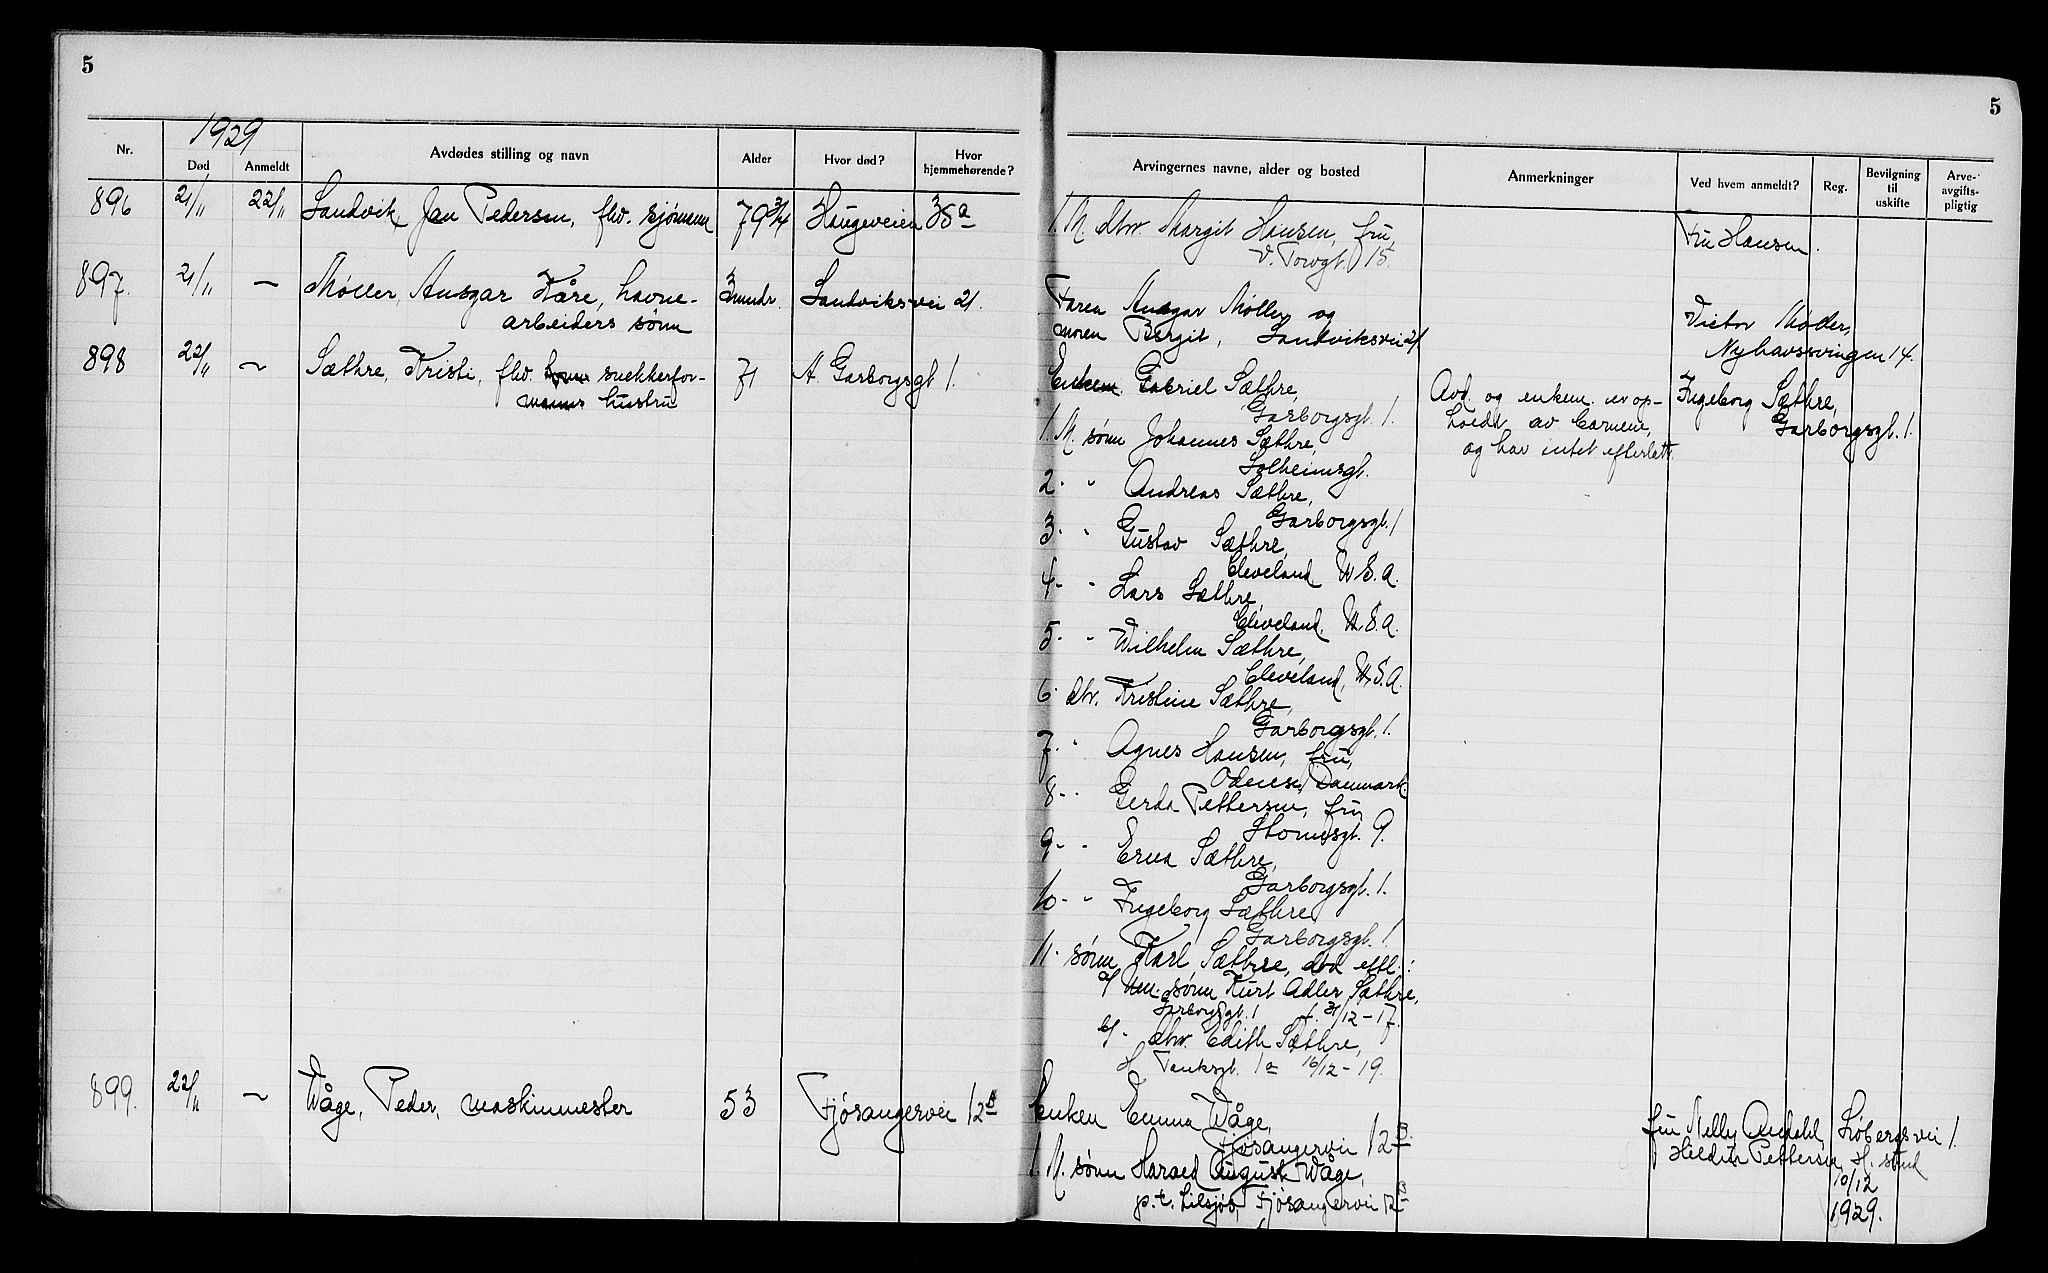 5
5
1929
Nr.
Død
Anmeldt
Avdødes stilling og navn
Alder
Hvor død?
Hvor hjemmehørende?
Arvingernes navne, alder og bosted
Anmerkninger
Ved hvem anmeldt?
Reg.
Bevilgning til uskifte
Arve-avgifts-pligtig
896 21/11 22/11 Sandvik, Jan Pedersen, fhv. sjømann 79 3/4 Haugeveien 38a
1. M. dtr. Margit Hansen, fru,
V. Torvgt. 15.
Fru Hansen.
897. 21/11 — Møller, Ansgar Kåre, havne-
arbeiders sønn
3 mndr. Sandviksvei 21.
Faren Ansgar Møller og
moren Bergit, Sandviksvei 21
Victor Møller,
Nyhavnsvingen 14.
898 22/11 — Sæthre, Kristi, fhv. snekkerfor-
manns hustru
71 A. Garborgsgt 1.
Enkem. Gabriel Sæthre,
Garborgsgt. 1.
Avd. og enkem. er op-
holdt av barnene,
og har intet efterlatt.
Ingeborg Sæthre,
Garborgsgt. 1.
1. M. sønn Johannes Sæthre,
Solheimsgt.
2. " Andreas Sæthre,
Garborgsgt. 1
3. " Gustav Sæthre,
Cleveland U.S.A.
4. " Lars Sæthre,
Cleveland. U.S.A.
5. " Wilhelm Sæthre,
Cleveland, U.S.A.
6. dtr. Kristine Sæthre,
Garborgsgt. 1.
7. " Agnes Hansen, fru,
Odense, Danmark.
8. " Gerda Pettersen, fru
9.
9. " Erna Sæthre,
Garborgsgt. 1.
10. " Ingeborg Sæthre
Garborgsgt. 1.
11. sønn Karl Sæthre, død eftl.:
a/ um. sønn Kurt Adler Sæthre,
Garborgsgt. 1 f. 31/12-17.
b/ - dtr. Edith Sæthre,
1a 16/12-19.
899. 22/11 — Wåge, Peder, maskinmester 53 Fjøsangervei 12B
Enken Emma Wåge,
Fjøsangervei 12B.
1. M. sønn Harald August Wåge,
p.t. tilsjøs, Fjøsangervei 12B
fru Nelly Andahl,
Pettersen,
10/12
1929.